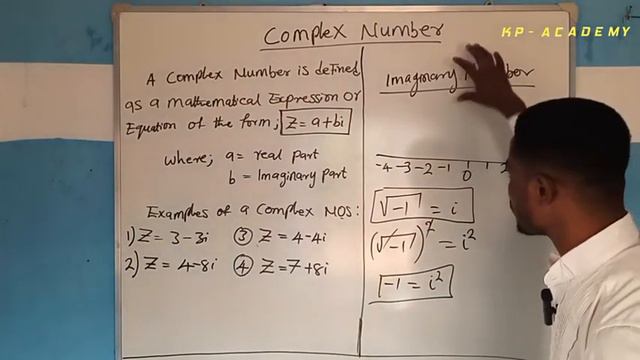 Complex Number
KP-ACADEMY
A Complex Number is defined
as a mathematical Expression or
Equation of the form; Z = a+bi
where; a = real part
b = Imaginary part
Examples of a Complex NOS:
1) Z = 3-3i ③ Z = 4-4i
2) Z = 4-8i ④ Z = 7+8i
Imaginary
-4 -3 -2 -1 0 1 2
√-1 = i
(√-1)² = i²
-1 = i²